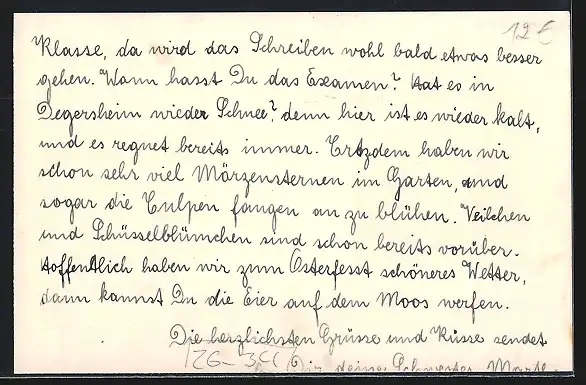 12 €
Klasse, da wird das Schreiben wohl bald etwas besser
gehen. Wann hasst Du das Examen? Hat es in
Degersheim wieder Schnee? denn hier ist es wieder kalt,
und es regnet bereits immer. Trotzdem haben wir
schon sehr viel Märzensternen im Garten, und
sogar die Tulpen fangen an zu blühen. Veilchen
und Schüsselblümchen sind schon bereits vorüber.
Hoffentlich haben wir zum Osterfesst schöneres Wetter,
dann kannst Du die Eier auf dem Moos werfen.
Die herzlichsten Grüsse und Küsse sendet
Dir deine Schwester